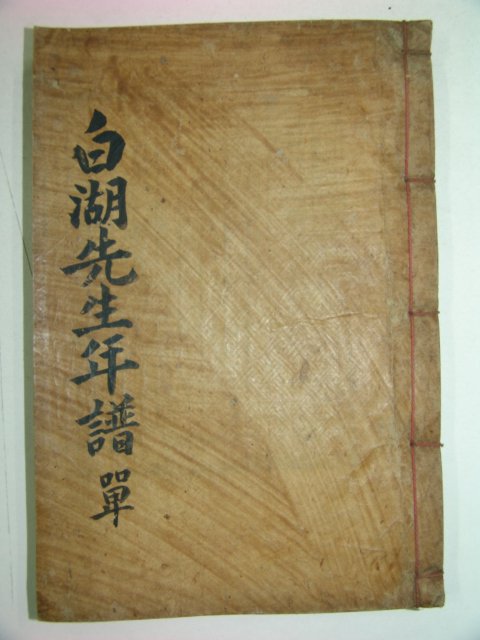 白湖先生年譜 單